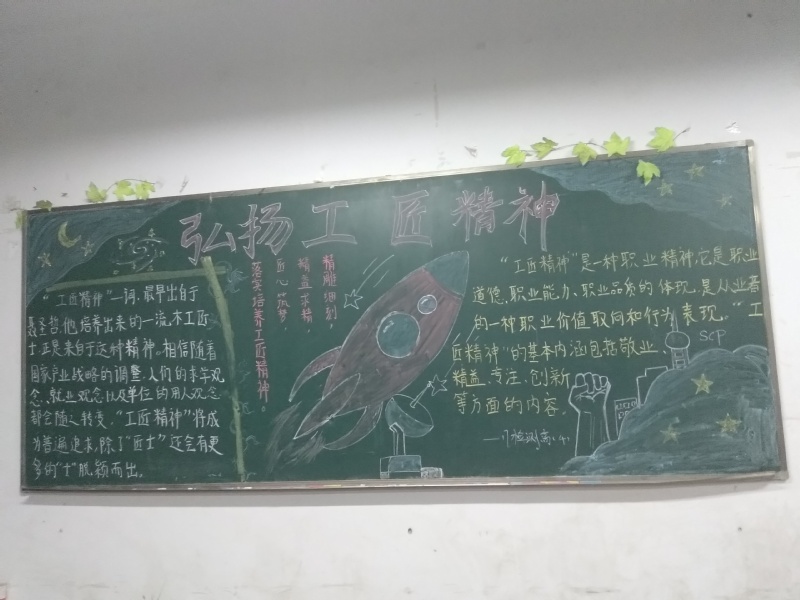 弘扬工匠精神
"工匠精神"一词,最早出自于
聂圣哲,他培养出来的一流木工匠
士,正是来自于这种精神。相信随着
国家产业战略的调整,人们的求学观
念、就业观念以及单位的用人观念
都会随之转变,"工匠精神"将成
为普遍追求,除了"匠士"还会有更
多的"士"脱颖而出。
精雕细刻,
精益求精
匠心筑梦
落实培养工匠精神。
"工匠精神"是一种职业精神,它是职业
道德、职业能力、职业品质的体现,是从业者
的一种职业价值取向和行为表现。"工
匠精神"的基本内涵包括敬业、
精益、专注、创新
等方面的内容。
SCP